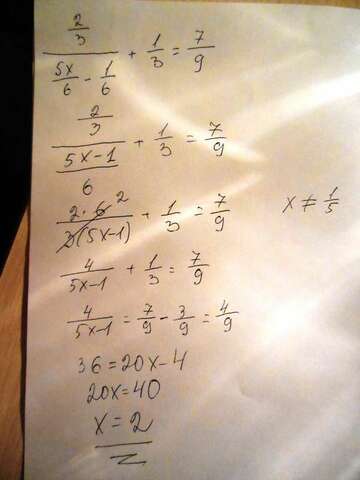 (2/3)/(5x/6 - 1/6) + 1/3 = 7/9
(2/3)/((5x-1)/6) + 1/3 = 7/9
(2·6 2)/(3(5x-1)) + 1/3 = 7/9 x ≠ 1/5
4/(5x-1) + 1/3 = 7/9
4/(5x-1) = 7/9 - 3/9 = 4/9
36=20x-4
20x=40
x=2